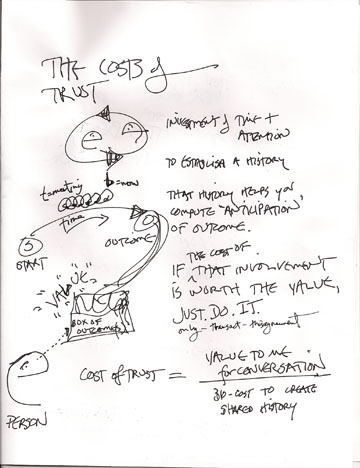 THE COSTS of
TRUST
INVESTMENT of TIME +
ATTENTION
TO ESTABLISH A HISTORY
t=meeting
=now
THAT HISTORY HELPS you
COMPUTE "ANTICIPATION"
OF OUTCOME.
time
S
START
O
OUTCOME
THE COST OF
IF ^ THAT INVOLVEMENT
IS WORTH THE VALUE,
JUST. DO. IT.
only - transact - this moment
VALUE
BOX OF
OUTCOMES
PERSON
COST of TRUST =
VALUE TO ME
for CONVERSATION
COST TO CREATE
SHARED HISTORY